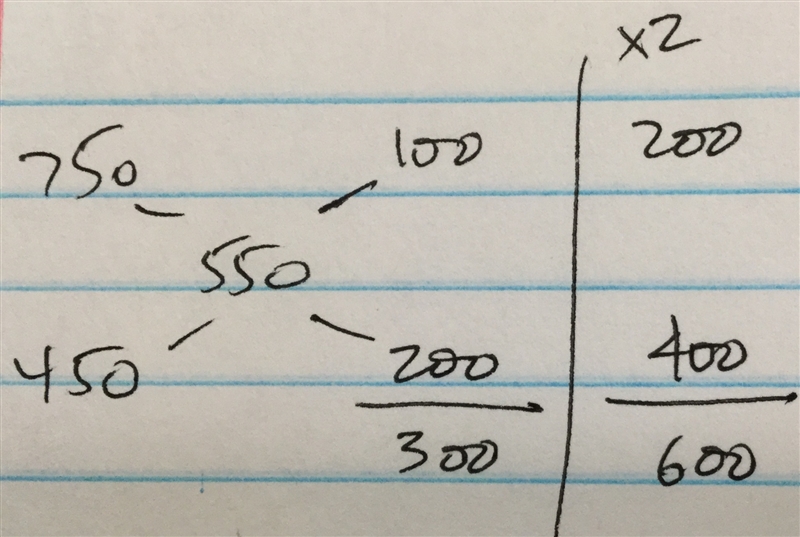 x2
750 100 200
550
450 200 400
300 600